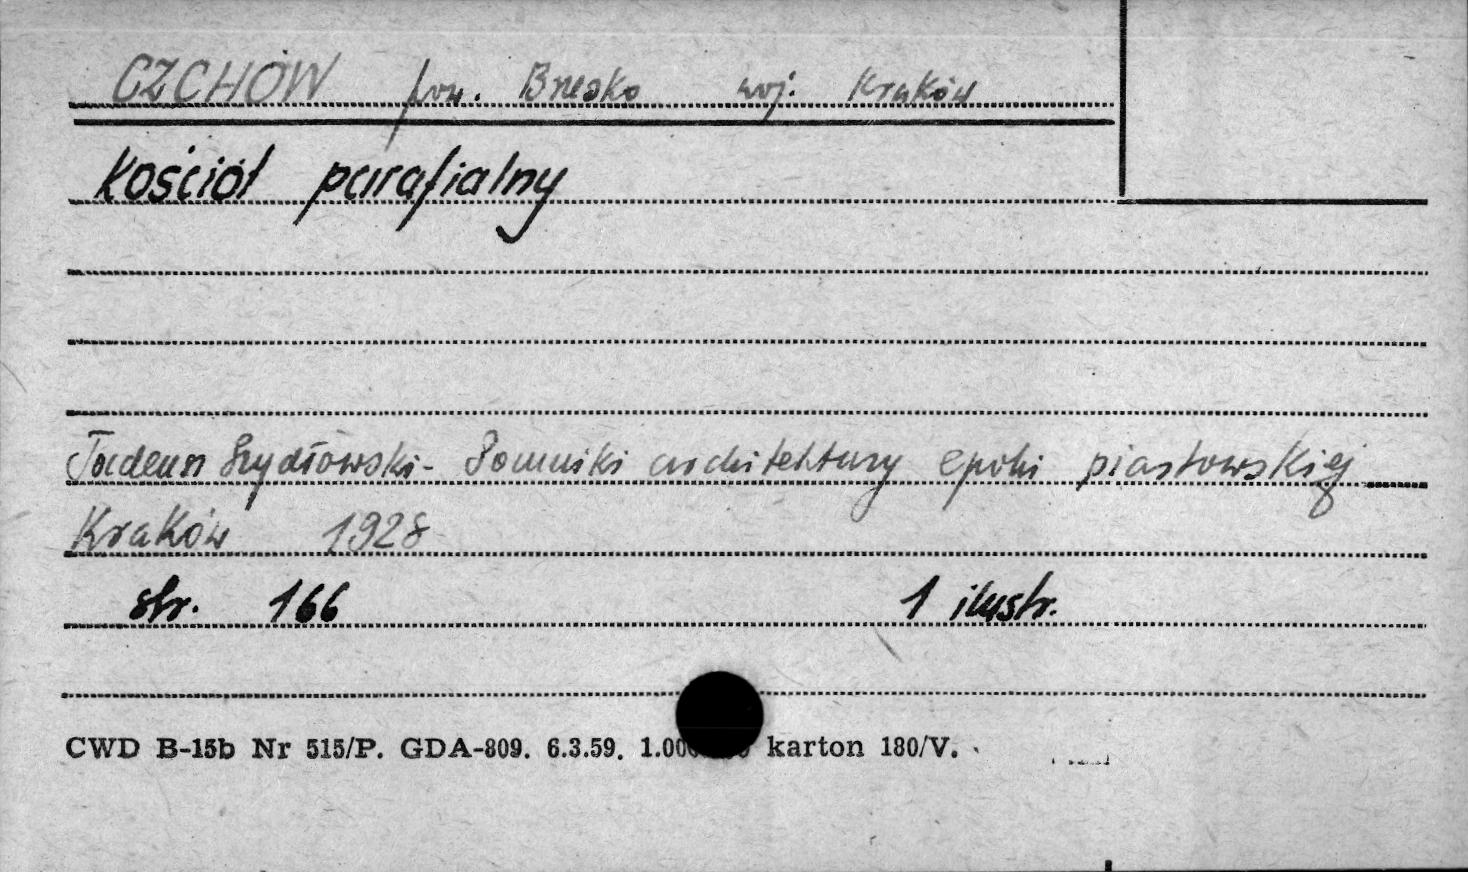 CZCHÓW pow. Brzesko woj. Kraków
Kościół parafialny
Tadeusz Szydłowski - Pomniki architektury epoki piastowskiej
Kraków 1928
str. 166 1 ilustr.
CWD B-15b Nr 515/P. GDA-809. 6.3.59. karton 180/V.